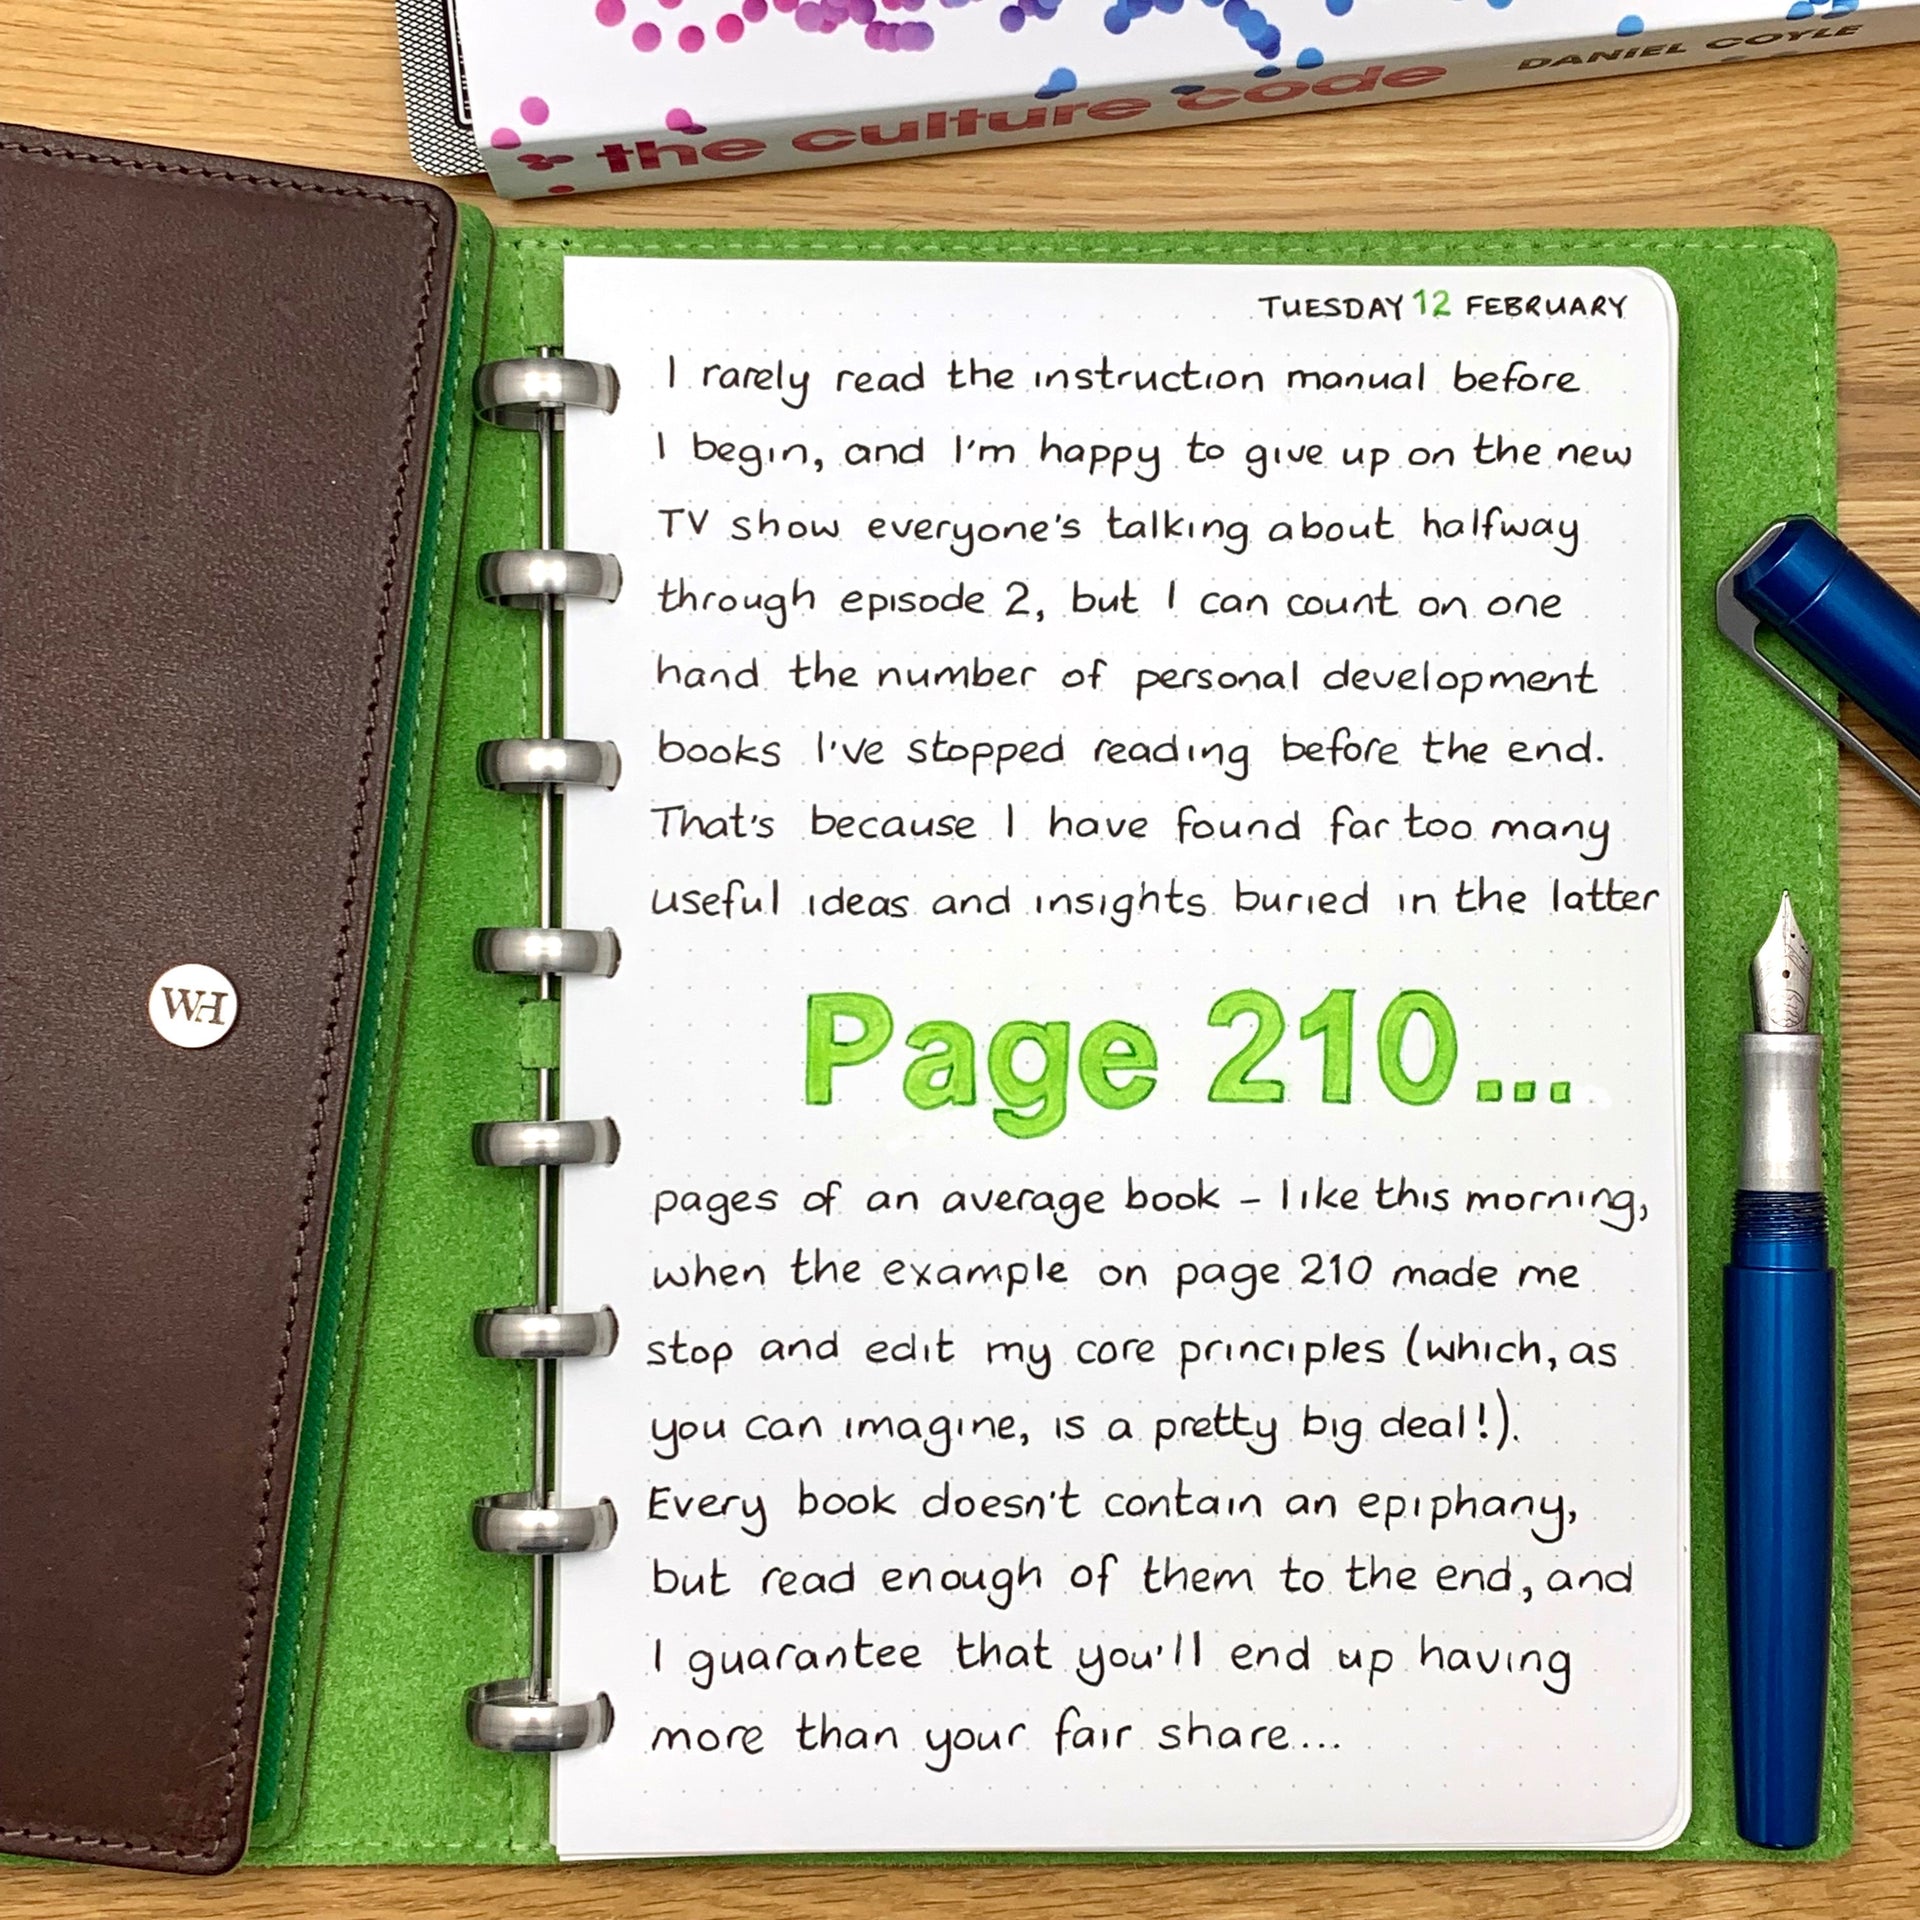 the culture code DANIEL COYLE
TUESDAY 12 FEBRUARY
I rarely read the instruction manual before
I begin, and I'm happy to give up on the new
TV show everyone's talking about halfway
through episode 2, but I can count on one
hand the number of personal development
books I've stopped reading before the end.
That's because I have found far too many
useful ideas and insights buried in the latter
Page 210...
pages of an average book – like this morning,
when the example on page 210 made me
stop and edit my core principles (which, as
you can imagine, is a pretty big deal!).
Every book doesn't contain an epiphany,
but read enough of them to the end, and
I guarantee that you'll end up having
more than your fair share...
WH